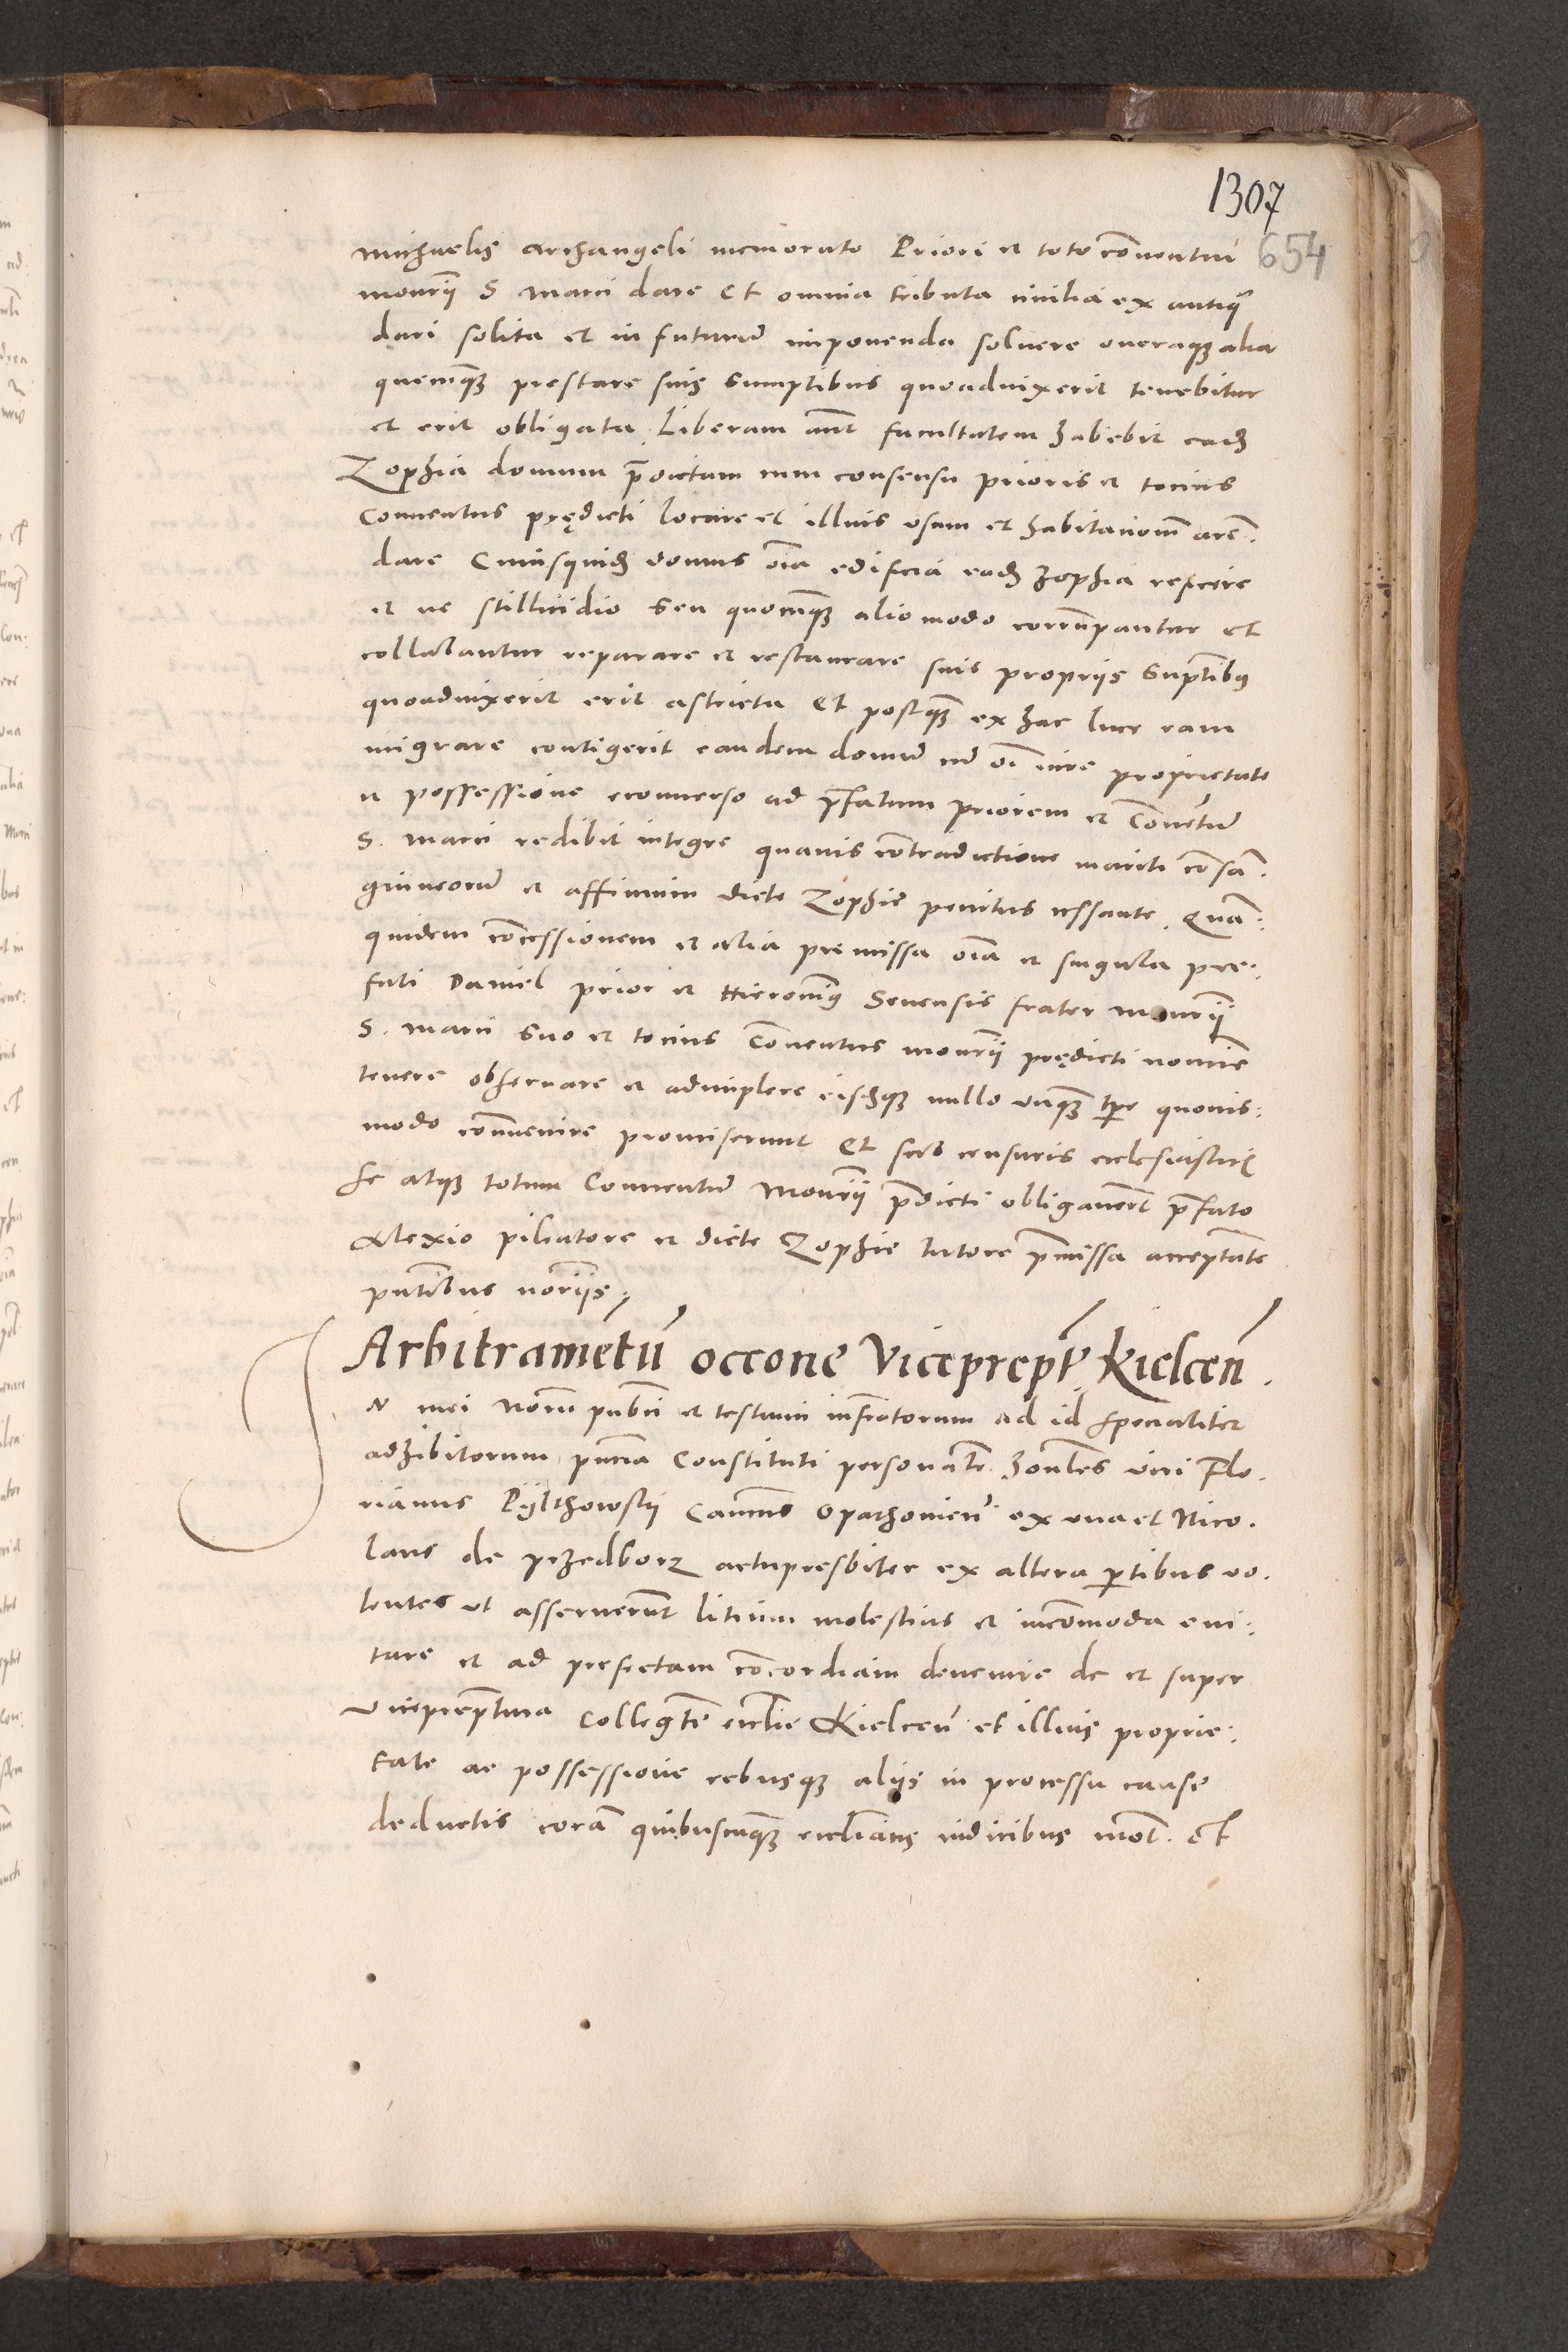 1307
654
Michaelis archangeli memorato Priori et toto conventui
monrii S Marci dare Et omnia tributa civilia ex antiqo
dari solita et in futurum imponenda solvere oneraq alia
quecumq prestare suis sumptibus quoadvixerit tenebitur
et erit obligata Liberam aut facultatem habebit eadem
Zophia domum predictam cum consensu prioris et tocius
Conventus prędicti locare et illius usum et habitacionem aren.
dare Cuiusquidem domus oia edificia eadem Zophia reficere
et ne stillicidio seu quocumq alio modo corrumpantur et
collabantur reparare et restaurare suis proprijs sumptibus
quoadvixerit erit astricta Et postq ex hac luce eam
migrare contigerit eandem domum cum oi iure proprietate
et possessione econverso ad prefatum priorem et Conventum
S. Marci redibit integre quavis contradictione mariti consan.
guineorum et affinium dicte Zophie penitus cessante. Quam:
quidem concessionem et alia premissa oia et singula pre:
fati Daniel prior et Hieronimus Senensis frater Monrii
S. Marci suo et tocius Conventus monrii prędicti nomine
tenere observare et adimplere eisdemque nullo unq tpe quovis:
modo contravenire promiserunt Et sub censuris ecclesiasticis
se atque totum Conventum Monrii predicti obligaverunt prefato
Alexio pileatore et dicte Zophie tutore premissa acceptante
pntibus noriis
Arbitrametum occone viceprept Kielcen.
IN mei Norii publici et testium infrascriptorum ad id specialiter
adhibitorum pntia Constituti personaliter honorabiles viri Flo.
rianus Pylchowskij Canonicus Opathovien ex una et Nico.
laus de przedborz archipresbiter ex altera partibus vo.
lentes ut asseruerunt litium molestias et incommoda evi:
tare et ad perfectam concordiam devenire de et super
vicepreptura Collegiate ecclie Kielcen et illius proprie:
tate ac possessione rebusq alijs in processu cause
deductis coram quibuscumq ecclianis iudicibus mot. Et